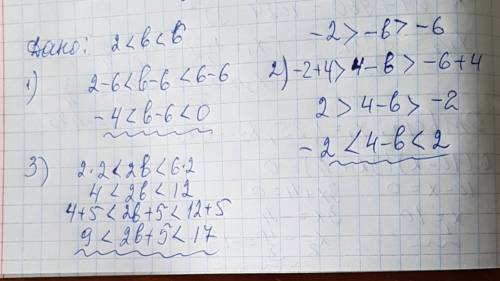 Дано: 2 < в < 6
1) 2-6 < в-6 < 6-6
-4 < в-6 < 0
3) 2·2 < 2в < 6·2
4 < 2в < 12
4+5 < 2в+5 < 12+5
9 < 2в+5 < 17
-2 > -в > -6
2) -2+4 > 4-в > -6+4
2 > 4-в > -2
-2 < 4-в < 2